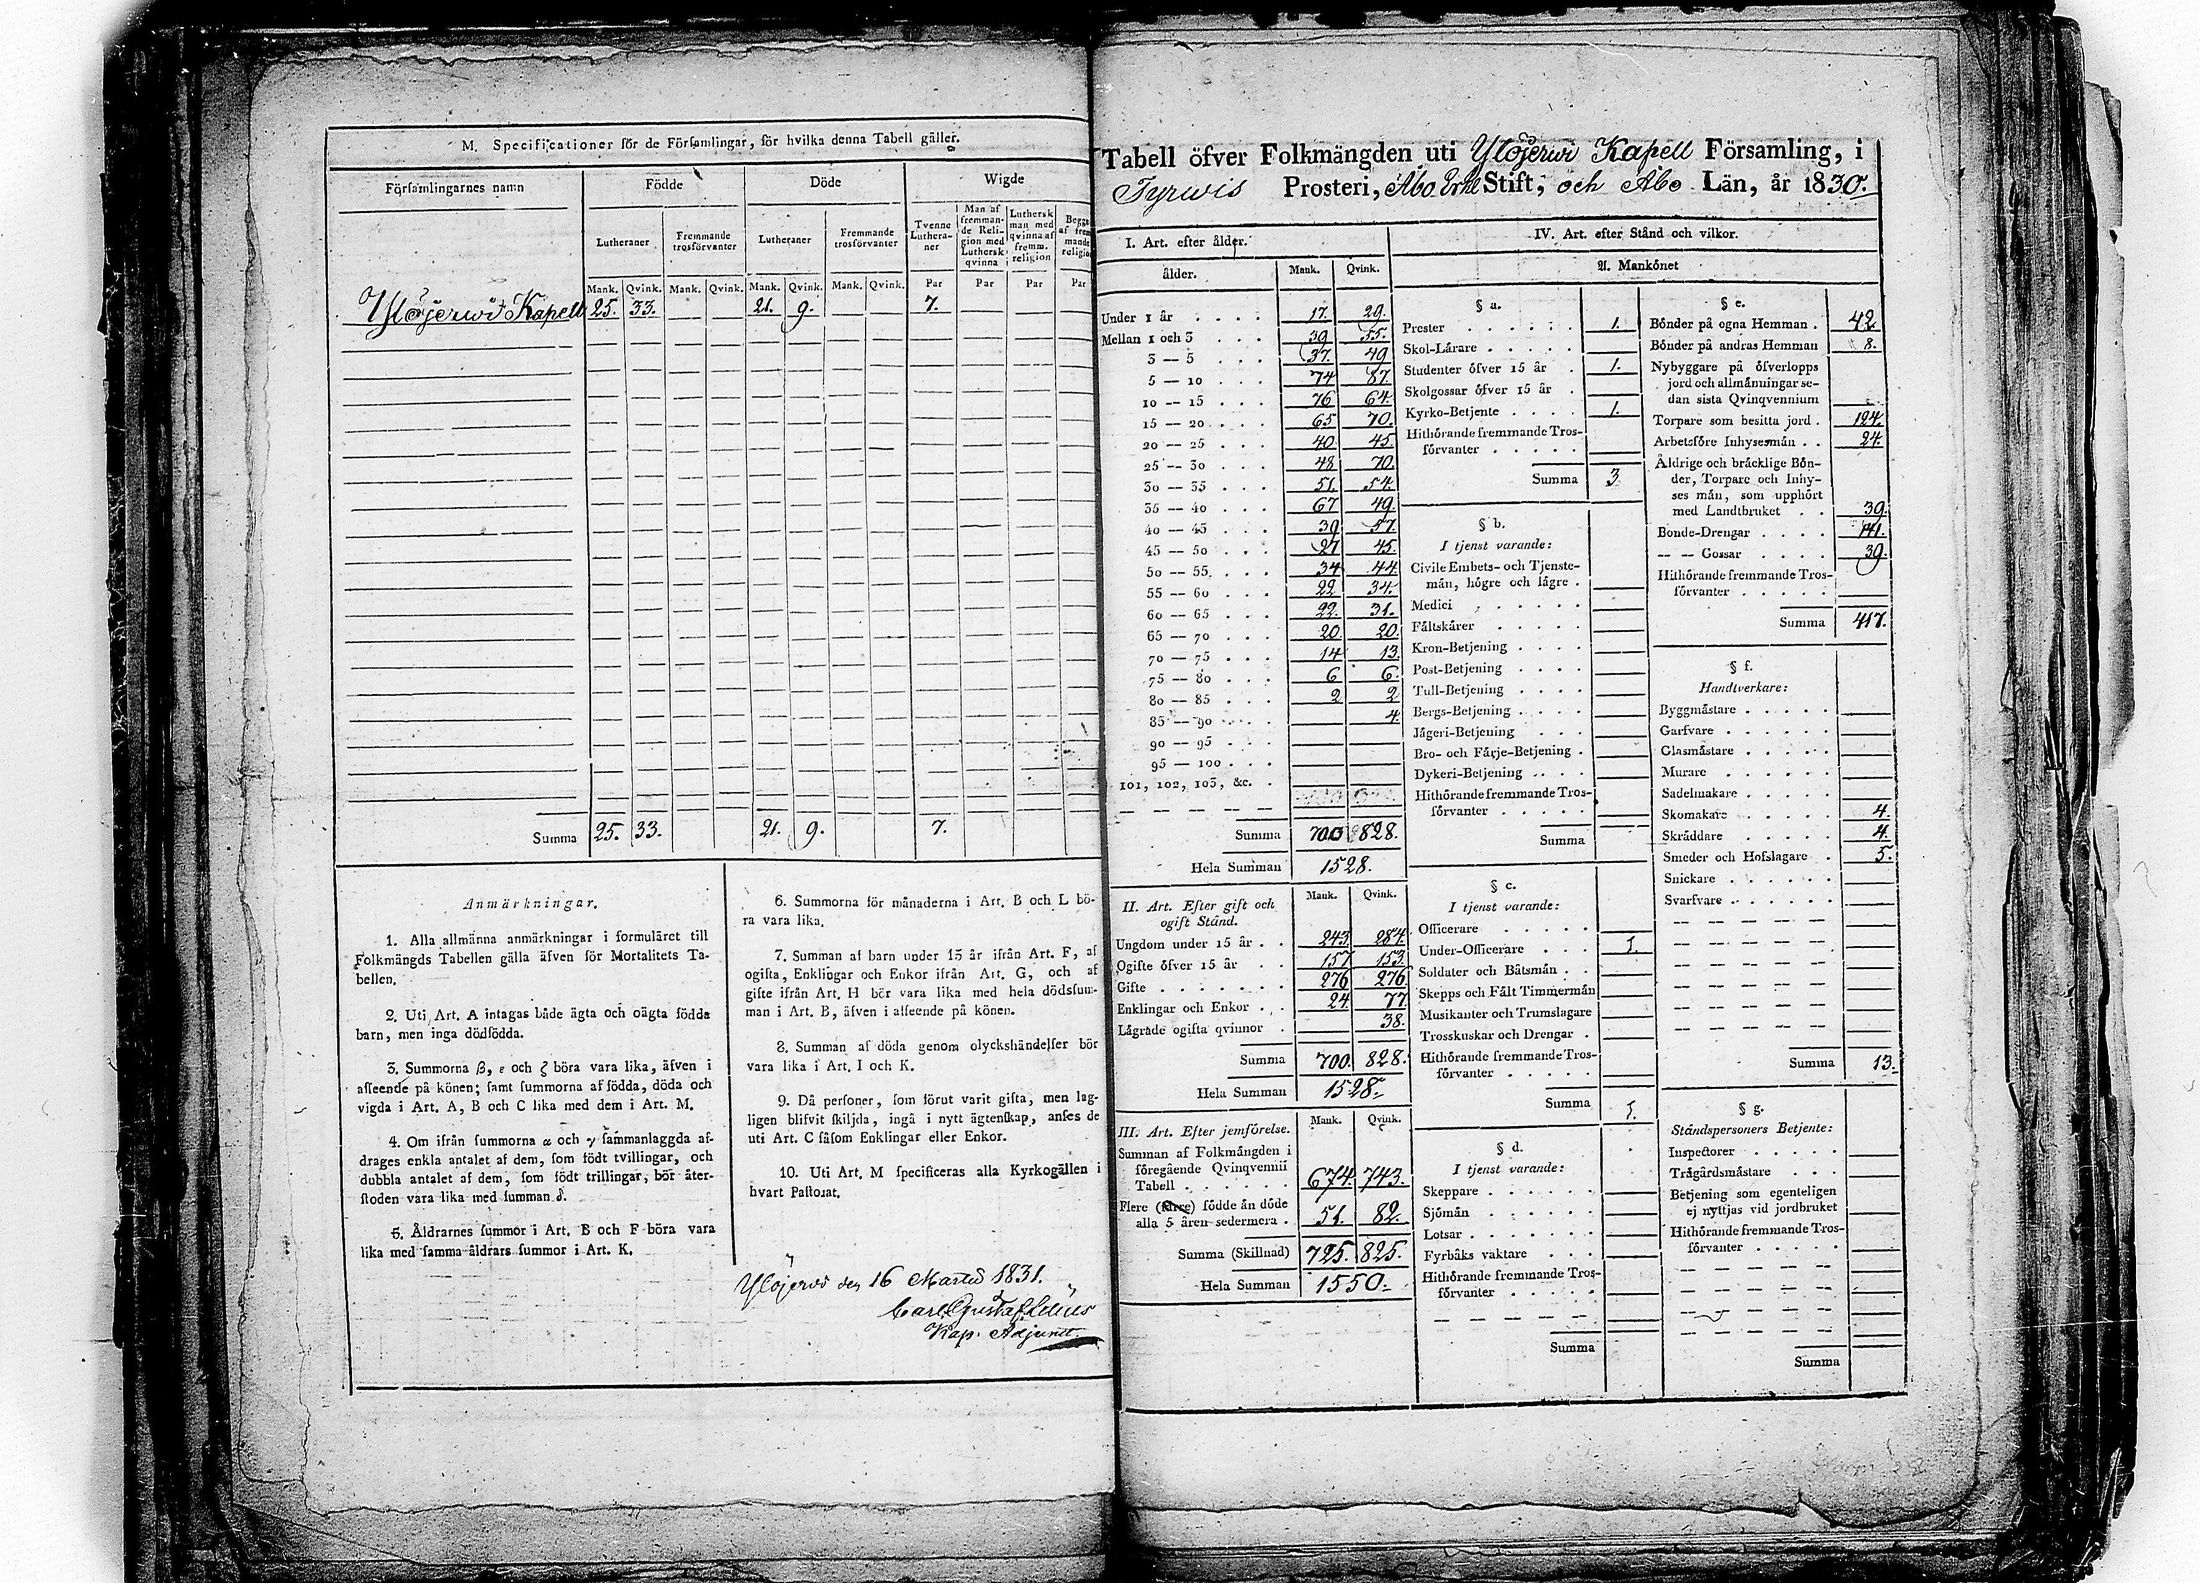 M. Specificationer för de Församlingar, för hvilka denna Tabell gäller.
Församlingarnes namn
Födde
Döde
Wigde
Lutheraner
Fremmande trosförvanter
Lutheraner
Fremmande trosförvanter
Tvenne Lutheraner
Man af fremmande Religion med Luthersk qvinna
Luthersk man med qvinna af fremm. religion
Begge af fremmande religion
Mank. Qvink. Mank. Qvink. Mank. Qvink. Mank. Qvink. Par Par Par Par
Ylöjerwi Kapell 25. 33. 21. 9. 7.
Summa 25. 33. 21. 9. 7.
Anmärkningar.
1. Alla allmänna anmärkningar i formuläret till
Folkmängds Tabellen gälla äfven för Mortalitets Ta-
bellen.
2. Uti Art. A intagas både ägta och oägta födda
barn, men inga dödfödda.
3. Summorna β, ε och ζ böra vara lika, äfven i
afseende på könen; samt summorna af födda, döda och
vigda i Art. A, B och C lika med dem i Art. M.
4. Om ifrån summorna α och γ sammanlaggda af-
drages enkla antalet af dem, som födt tvillingar, och
dubbla antalet af dem, som födt trillingar, bör åter-
stoden vara lika med summan δ.
5. Åldrarnes summor i Art. B och F böra vara
lika med samma åldrars summor i Art. K.
6. Summorna för månaderna i Art. B och L bö-
ra vara lika.
7. Summan af barn under 15 år ifrån Art. F, af
ogifta, Enklingar och Enkor ifrån Art. G, och af
gifte ifrån Art. H bör vara lika med hela dödssum-
man i Art. B, äfven i afseende på könen.
8. Summan af döda genom olyckshändelser bör
vara lika i Art. I och K.
9. Då personer, som förut varit gifta, men lag-
ligen blifvit skiljda, ingå i nytt ägtenskap, anses de
uti Art. C såsom Enklingar eller Enkor.
10. Uti Art. M specificeras alla Kyrkogällen i
hvart Pastorat.
Ylöjerwi den 16 Martii 1831.
Carl Gustaf
Kap. Adjunct.
Tabell öfver Folkmängden uti Ylöjerwi Kapell Församling, i
Tyrwis Prosteri, Åbo Erke Stift, och Åbo Län, år 1830.
I. Art. efter ålder.
ålder. Mank. Qvink.
Under 1 år 17. 29.
Mellan 1 och 3 39 55.
3 — 5 37. 49
5 — 10 74 87.
10 — 15 76 64.
15 — 20 65 70.
20 — 25 40 45.
25 — 30 48 70.
30 — 35 51. 54.
35 — 40 67 49.
40 — 45 39 57.
45 — 50 27 45.
50 — 55 34 44.
55 — 60 22 34.
60 — 65 22. 31.
65 — 70 20 20.
70 — 75 14 13.
75 — 80 6 6.
80 — 85 2 2
85 — 90 4.
90 — 95
95 — 100
101, 102, 103, &c.
Summa 700 828.
Hela Summan 1528.
II. Art. Efter gift och ogift Stånd. Mank. Qvink.
Ungdom under 15 år 243. 284.
Ogifte öfver 15 år 157 153.
Gifte 276 276
Enklingar och Enkor 24. 77.
Lägrade ogifta qvinnor 38.
Summa 700. 828.
Hela Summan 1528.
III. Art. Efter jemförelse. Mank. Qvink.
Summan af Folkmängden i
föregående Qvinqvennii
Tabell 674. 743.
Flere (färre) födde än döde
alla 5 åren sedermera 51. 82.
Summa (Skillnad) 725. 825.
Hela Summan 1550.
IV. Art. efter Stånd och vilkor.
A. Mankönet
§ a.
Prester 1.
Skol-Lärare
Studenter öfver 15 år 1.
Skolgossar öfver 15 år
Kyrko-Betjente 1.
Hithörande fremmande Tros-
förvanter
Summa 3
§ b.
I tjenst varande:
Civile Embets- och Tjenste-
män, högre och lägre
Medici
Fältskärer
Kron-Betjening
Post-Betjening
Tull-Betjening
Bergs-Betjening
Jägeri-Betjening
Bro- och Färje-Betjening
Dykeri-Betjening
Hithörande fremmande Tros-
förvanter
Summa
§ c.
I tjenst varande:
Officerare
Under-Officerare 1.
Soldater och Båtsmän
Skepps och Fält Timmermän
Musikanter och Trumslagare
Trosskuskar och Drengar
Hithörande fremmande Tros-
förvanter
Summa 1.
§ d.
I tjenst varande:
Skeppare
Sjömän
Lotsar
Fyrbåks vaktare
Hithörande fremmande Tros-
förvanter
Summa
§ e.
Bönder på egna Hemman 42.
Bönder på andras Hemman 8.
Nybyggare på öfverlopps
jord och allmänningar se-
dan sista Qvinqvennium
Torpare som besitta jord 124.
Arbetsföre Inhysesmän 24.
Åldrige och bräcklige Bön-
der, Torpare och Inhy-
ses män, som upphört
med Landtbruket 39.
Bonde-Drengar 141.
— — Gossar 39.
Hithörande fremmande Tros-
förvanter
Summa 417.
§ f.
Handtverkare:
Byggmästare
Garfvare
Glasmästare
Murare
Sadelmakare
Skomakare 4.
Skräddare 4.
Smeder och Hofslagare 5.
Snickare
Svarfvare
Summa 13.
§ g.
Ståndspersoners Betjente:
Inspectorer
Trägårdsmästare
Betjening som egenteligen
ej nyttjas vid jordbruket
Hithörande fremmande Tros-
förvanter
Summa